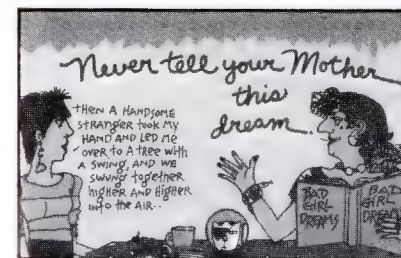 Never tell your Mother
this
dream
THEN A HANDSOME
STRANGER TOOK MY
HAND AND LED ME
OVER TO A TREE WITH
A SWING, AND WE
SWUNG TOGETHER
HIGHER AND HIGHER
INTO THE AIR..
BAD
GIRL
DREAMS
BAD
GIRL
DREAM